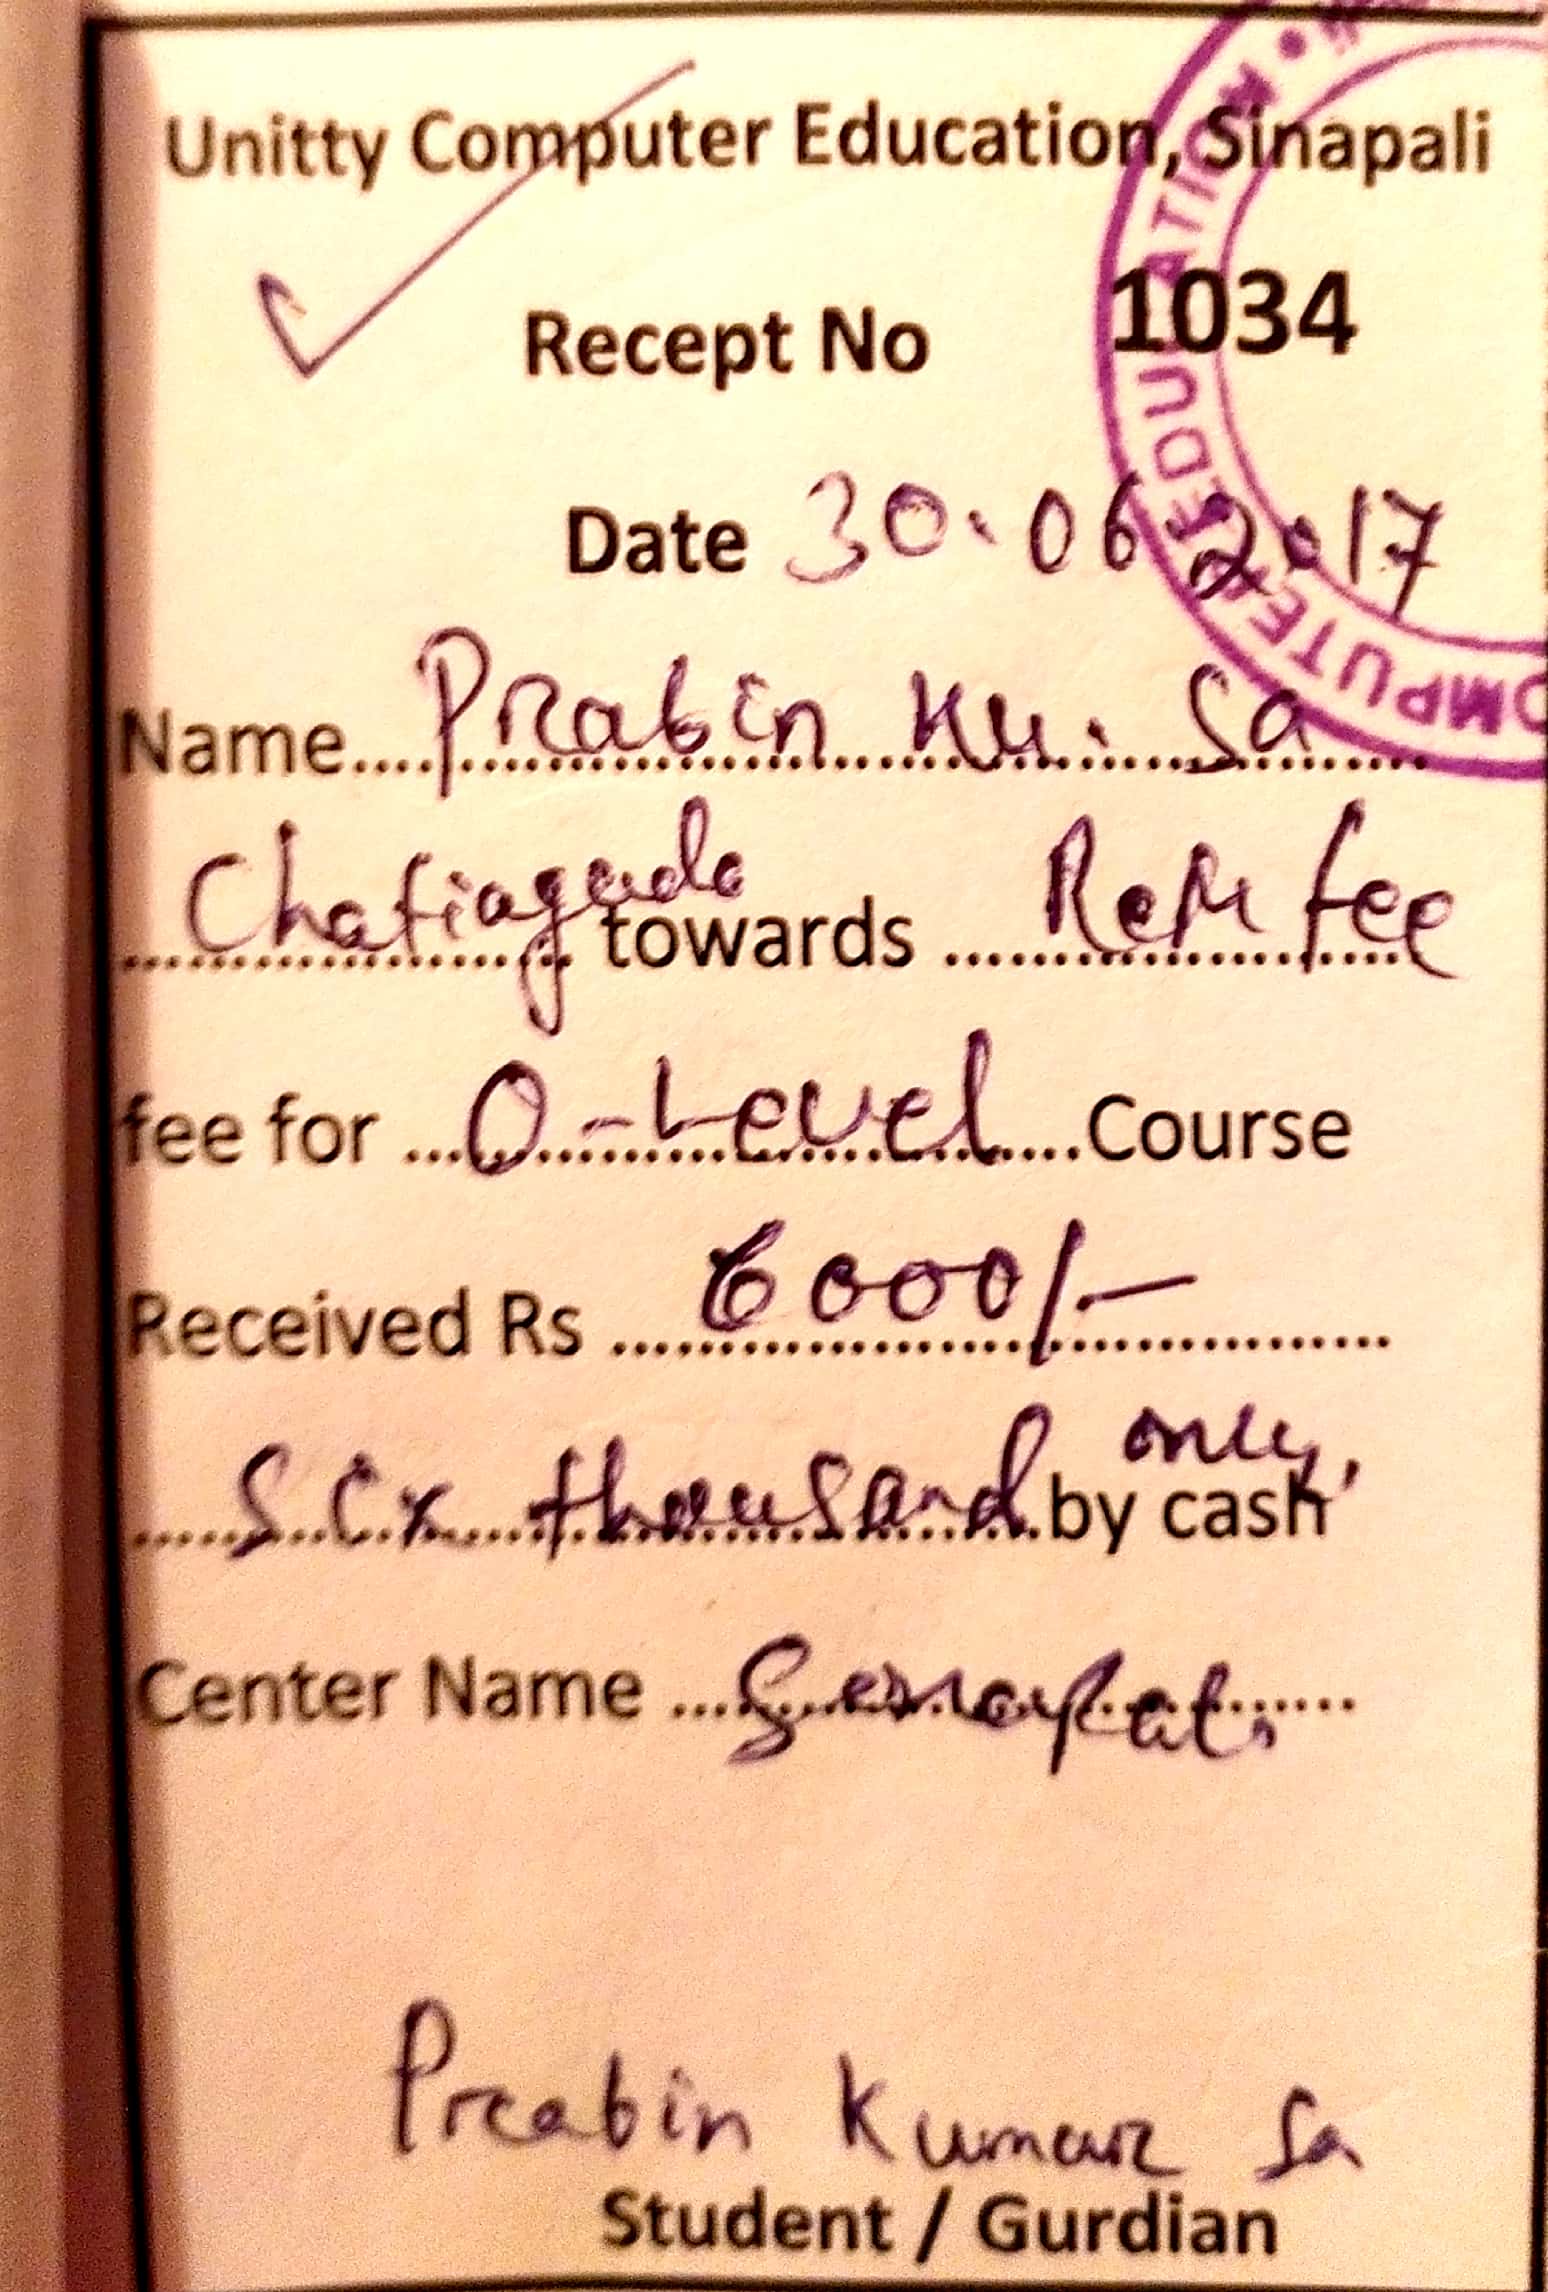 Unitty Computer Education, Sinapali
Recept No 1034
Date 30.06.2017
Name.... Prabin Ku. Sa
Chatiaguda towards ... fee
fee for ... O-Level ... Course
Received Rs ... 6000/-
Six thousand only, by cash
Center Name ...
Prabin Kumar Sa
Student / Gurdian
COMPUTER EDUCATION